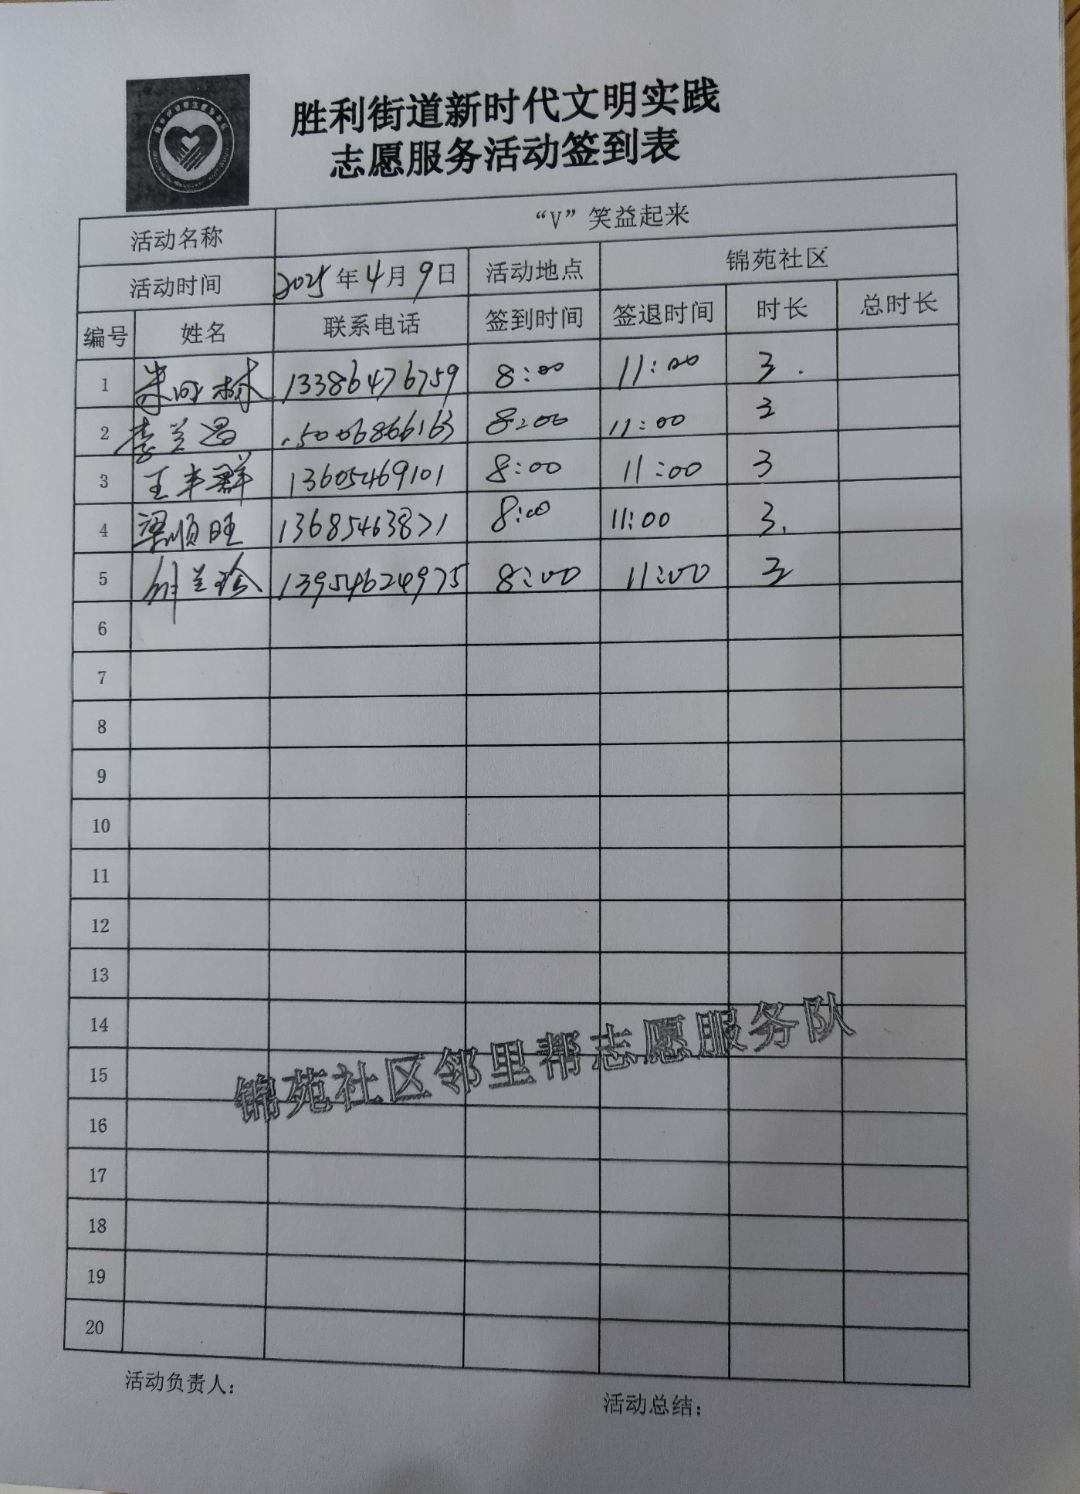 胜利街道新时代文明实践
志愿服务活动签到表
活动名称 “V”笑益起来
活动时间 2025年4月9日 活动地点 锦苑社区
编号 姓名 联系电话 签到时间 签退时间 时长 总时长
1 13386476759 8:00 11:00 3.
2 李兰昌 15006866163 8:00 11:00 3
3 王丰群 13605469101 8:00 11:00 3
4 梁顺旺 13685463871 8:00 11:00 3.
5 13954624975 8:00 11:00 3
6
7
8
9
10
11
12
13
14
15
16
17
18
19
20
锦苑社区邻里帮志愿服务队
活动负责人:
活动总结: